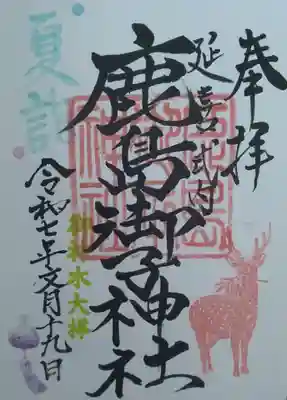 奉拝
延喜式内
鹿島御子神社
夏詣
令和七年文月十九日